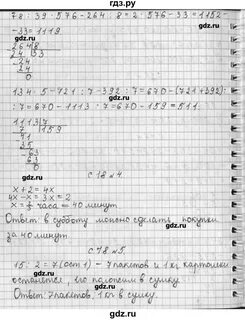 ГДЗ.РУ
78 : 39 · 576 - 264 : 8 = 2 · 576 - 33 = 1152 -
- 33 = 1119
264 8
24 33
24
24
0
134 · 5 - 721 : 7 - 392 : 7 = 670 - (721 + 392) :
: 7 = 670 - 1113 : 7 = 670 - 159 = 511.
1113 7
7 159
41
35
63
63
0
с. 78 № 4.
x + 2 = 4x
4x - x = 3x = 2
x = часа = 40 минут
Ответ: в субботу можно сделать покупки
за 40 минут.
с. 78 № 5.
15 : 2 = 7 (ост 1) - 7 пакетов и 1 кг картошки
останется, его положили в сумку.
Ответ: 7 пакетов, 1 кг в сумку.
gdz.ru